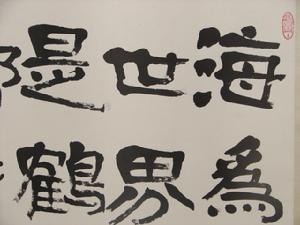 海為
世界
是鶴